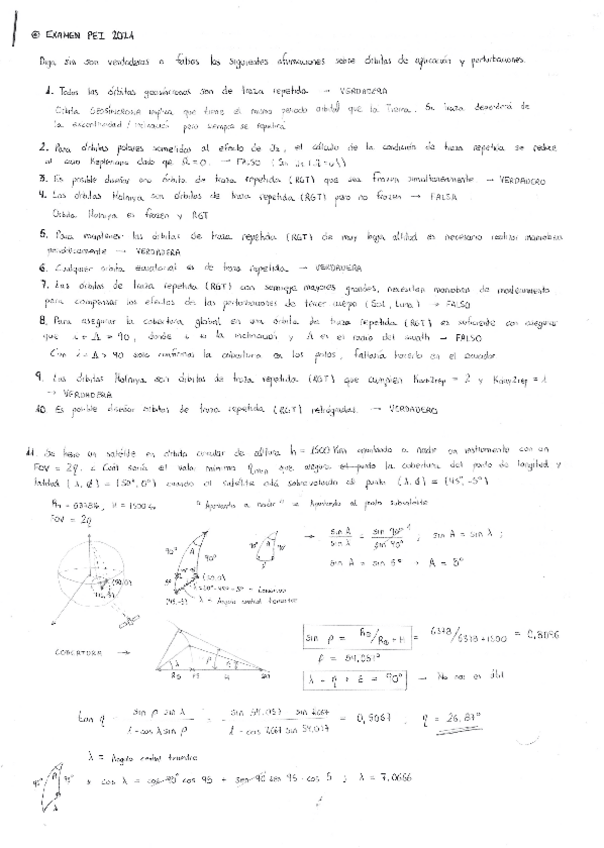 EXAMEN PEI 2024
Diga si son verdaderas o falsas las siguientes afirmaciones sobre órbitas de aplicación y perturbaciones.
1. Todas las órbitas geosíncronas son de traza repetida → VERDADERA
Órbita GEOSÍNCRONA implica que tiene el mismo periodo orbital que la Tierra. Su traza dependerá de
la excentricidad / inclinación pero siempre se repetirá
2. Para órbitas polares sometidas al efecto de J2, el cálculo de la condición de traza repetida se reduce
al caso Kepleriano dado que Ω = 0. → FALSO
3. Es posible diseñar una órbita de traza repetida (RGT) que sea Frozen simultáneamente → VERDADERO
4. Las órbitas Molniya son órbitas de traza repetida (RGT) pero no frozen → FALSA
Órbita Molniya es frozen y RGT
5. Para mantener las órbitas de traza repetida (RGT) de muy baja altitud es necesario realizar maniobras
periódicamente → VERDADERA
6. Cualquier órbita ecuatorial es de traza repetida. → VERDADERA
7. Las órbitas de traza repetida (RGT) con semieje mayores grandes, necesitan maniobras de mantenimiento
para compensar los efectos de las perturbaciones de tercer cuerpo (Sol, Luna) → FALSO
8. Para asegurar la cobertura global en una órbita de traza repetida (RGT) es suficiente con asegurar
que i + Λ > 90, donde i es la inclinación y Λ es el ancho del swath → FALSO
Con i + Λ > 90 solo confirmas la cobertura en los polos, faltaría hacerlo en el ecuador
9. Las órbitas Molniya son órbitas de traza repetida (RGT) que cumplen = 2 y = 1
→ VERDADERA
10. Es posible diseñar órbitas de traza repetida (RGT) retrógradas. → VERDADERO
11. Se tiene un satélite en órbita circular de altura h = 1500 Km apuntando a nadir un instrumento con un
FOV = 2η. ¿Cuál sería el valor mínimo η que asegura el punto la cobertura del punto de longitud y
latitud (λ, φ) = (50°, 0°) cuando el satélite está sobrevolando el punto (λ, φ) = (45°, -5°)
H = 1500 Km "Apuntando a nadir" = Apuntando al punto subsatélite
FOV = 2η
→ sin A / sin λ = sin 90° / sin 90° ; sin A = sin λ ;
sin A = sin 5° → A = 5°
90° 90°
(45,-5)
λ = Ángulo central terrestre
COBERTURA →
sin ρ = R⊕ / R⊕ + H = 6378 / 6378 + 1500 = 0,8096
ρ = 54,057°
λ + η + ε = 90° → No nos es útil
tan η = sin ρ sin λ / 1 - cos λ sin ρ = = 0,5067 , η = 26,87°
λ = Ángulo central terrestre
cos λ = cos 90° cos 95 + sen 90 sen 95 · cos 5 ; λ = 7,0666